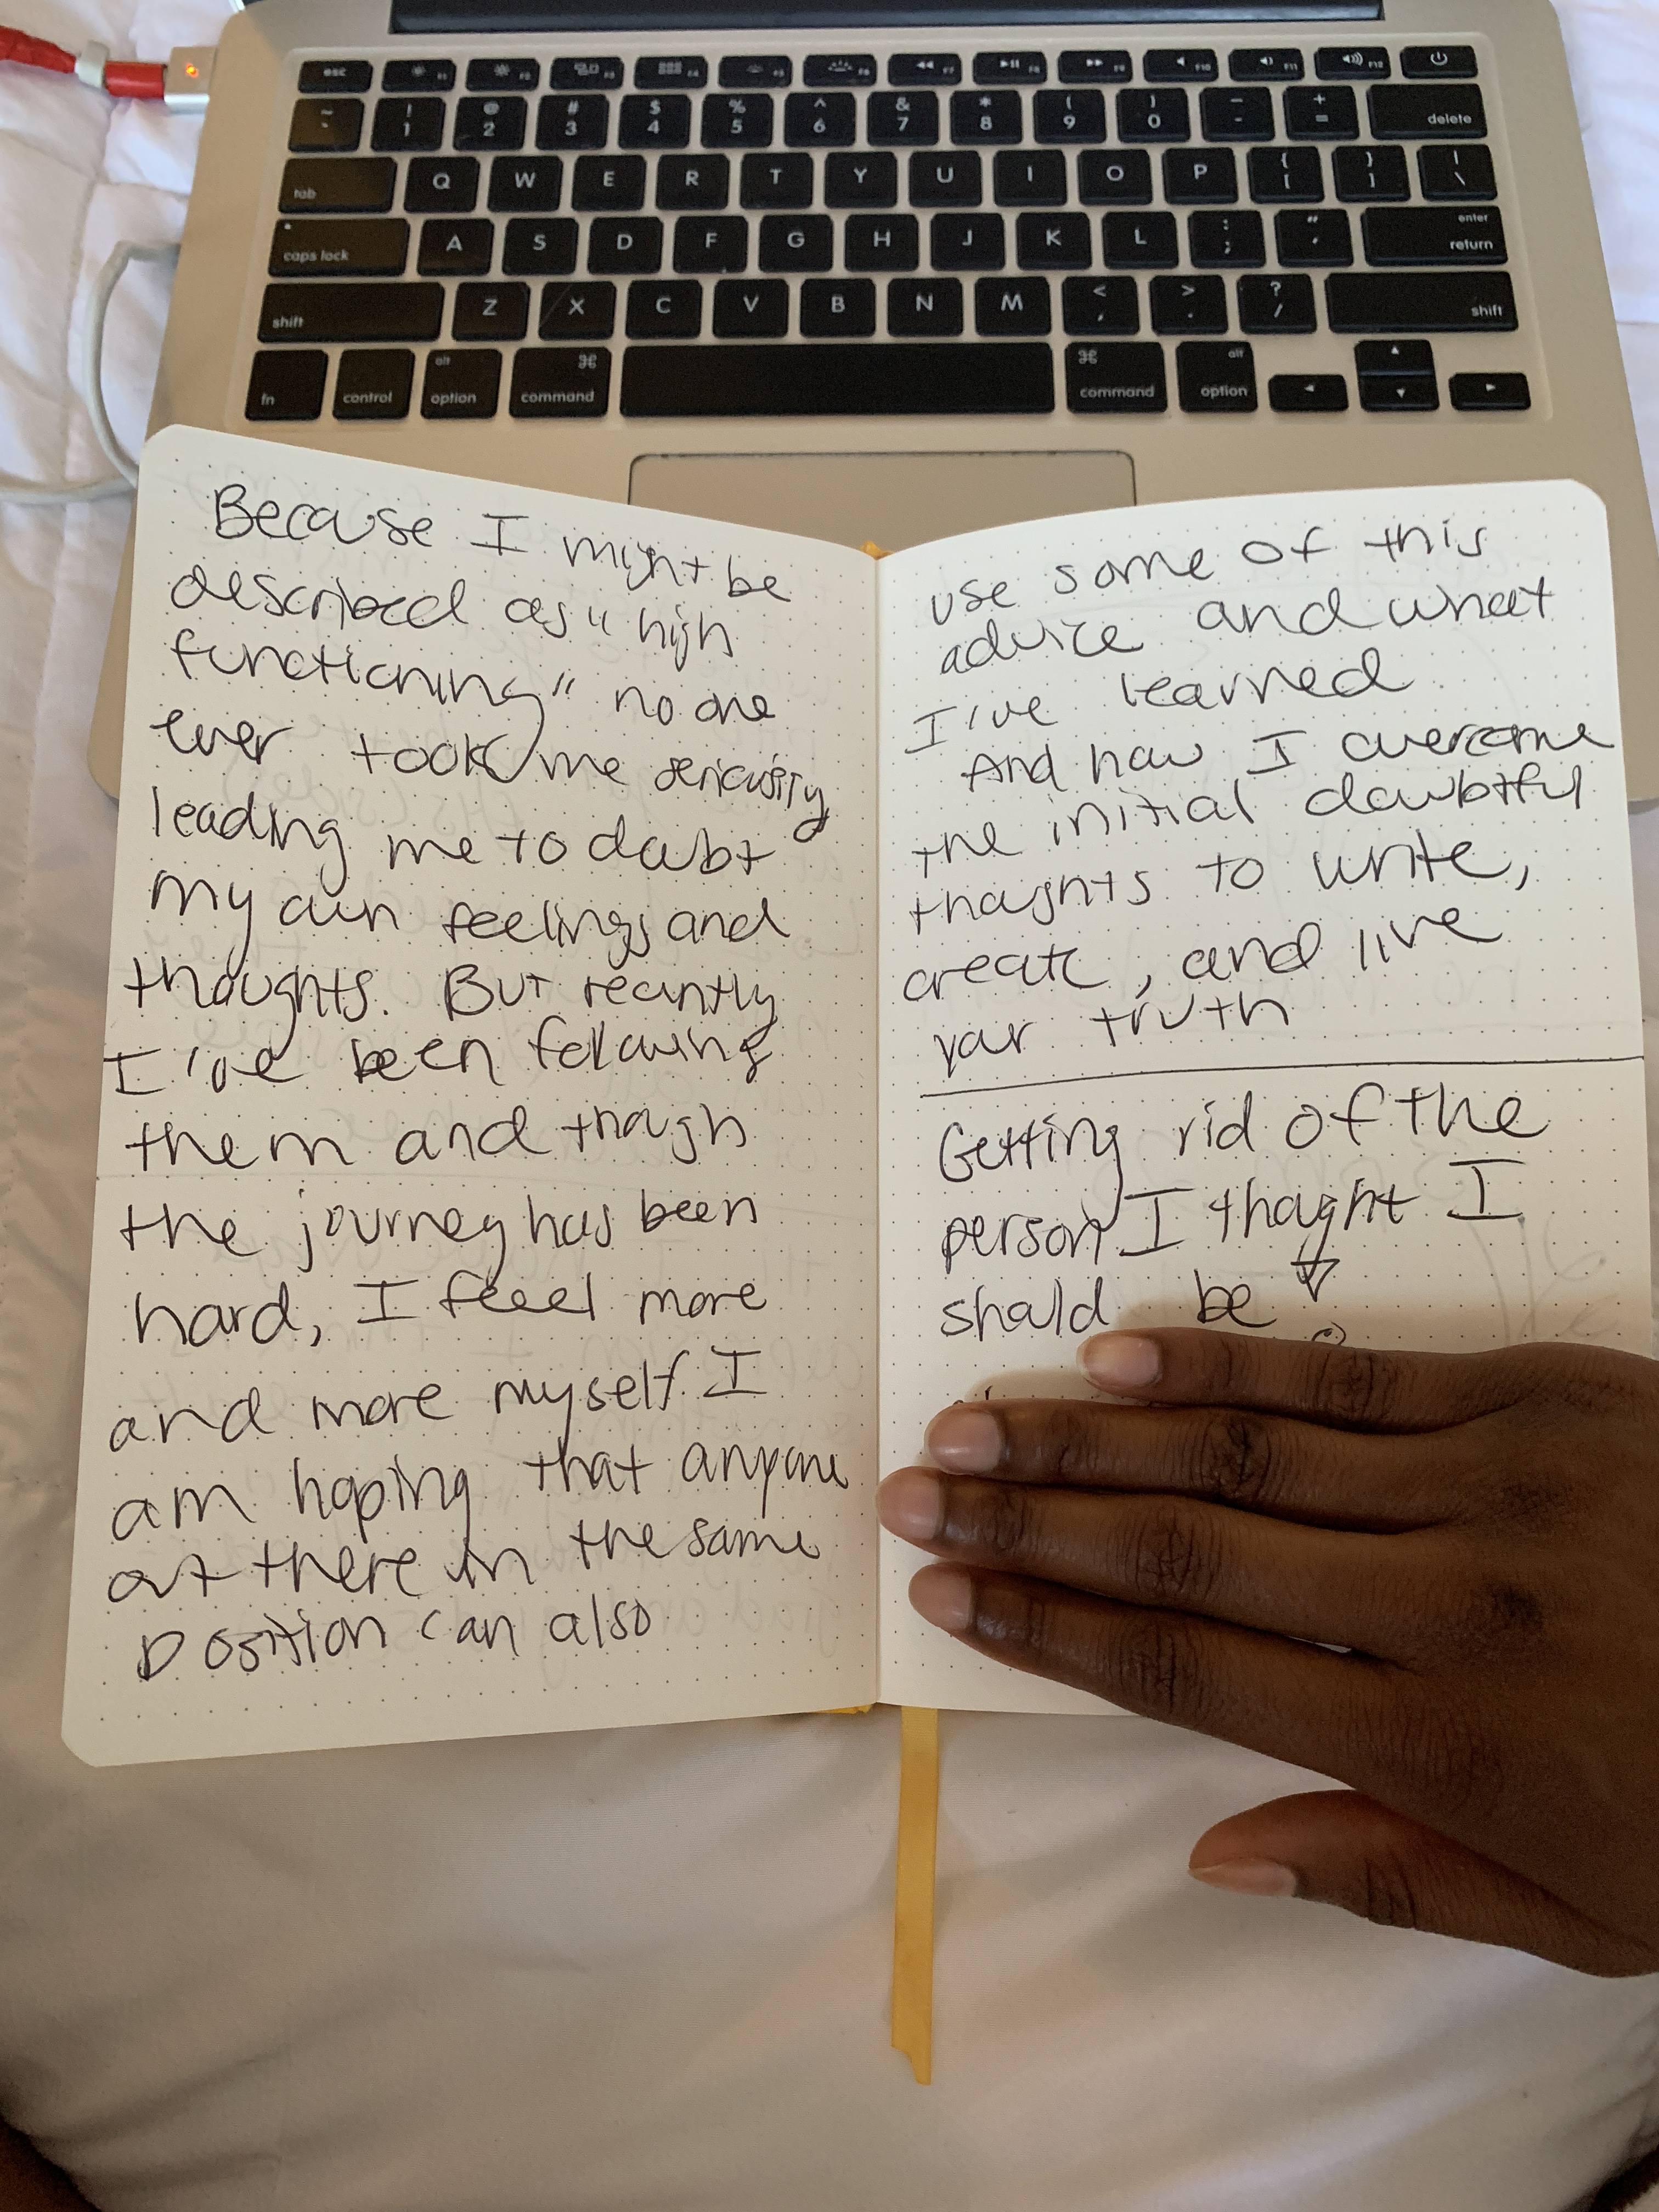 esc F1 F2 F3 F4 F5 F6 F7 F8 F9 F10 F11 F12
~ ` ! 1 @ 2 # 3 $ 4 % 5 ^ 6 & 7 * 8 ( 9 ) 0 _ - + = delete
tab Q W E R T Y U I O P { [ } ] | \
caps lock A S D F G H J K L : ; " ' enter return
shift Z X C V B N M < , > . ? / shift
fn control alt option ⌘ command ⌘ command alt option
Because I might be
described as "high
functioning" no one
ever took me seriously
leading me to doubt
my own feelings and
thoughts. But recently
I've been following
them and though
the journey has been
hard, I feeel more
and more myself. I
am hoping that anyone
out there in the same
position can also
use some of this
advice and what
I've learned
And how I overcome
the initial doubtful
thoughts to write,
create, and live
your truth
Getting rid of the
person I thought I
should be